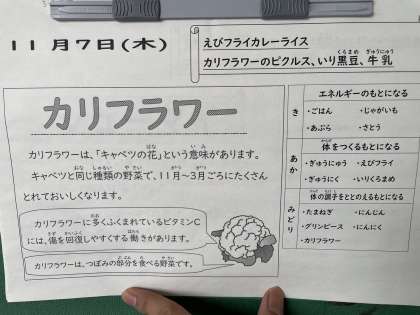 11月7日(木)
えびフライカレーライス
カリフラワーのピクルス、いり黒豆、牛乳
カリフラワー
カリフラワーは、「キャベツの花」という意味があります。
キャベツと同じ種類の野菜で、11月~3月ごろにたくさん
とれておいしくなります。
カリフラワーに多くふくまれているビタミンC
には、傷を回復しやすくする働きがあります。
カリフラワーは、つぼみの部分を食べる野菜です。
き
エネルギーのもとになる
・ごはん ・じゃがいも
・あぶら ・さとう
あか
体をつくるもとになる
・ぎゅうにゅう ・えびフライ
・ぎゅうにく ・いりくろまめ
みどり
体の調子をととのえるもとになる
・たまねぎ ・にんじん
・グリンピース ・にんにく
・カリフラワー